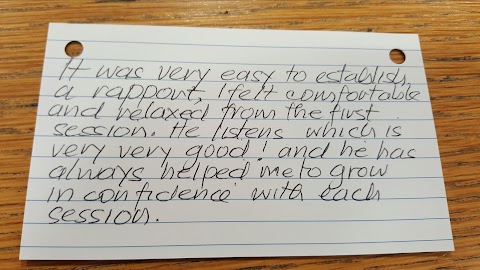 It was very easy to establish
a rapport, I felt comfortable
and relaxed from the first
session. He listens which is
very very good! and he has
always helped me to grow
in confidence with each
session.